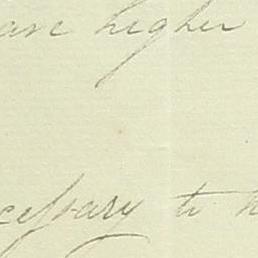 are higher
cessary to